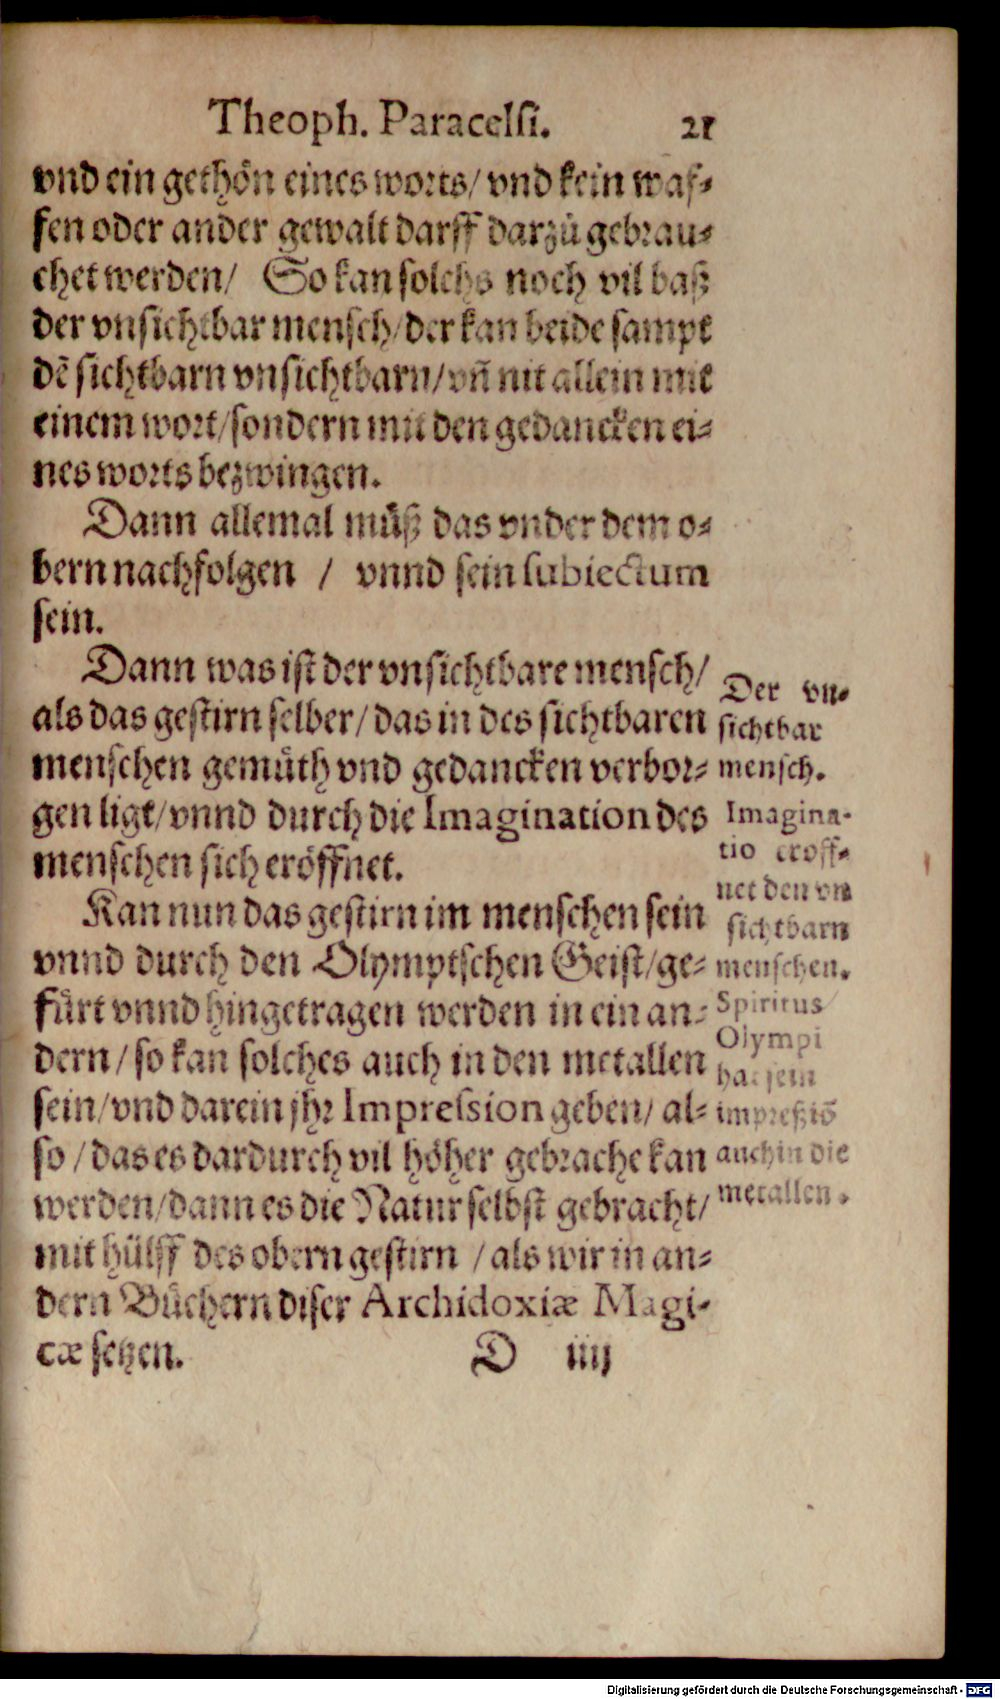 Theoph. Paracelsi. 21
vnd ein gethön eines worts/ vnd kein waf⸗
fen oder ander gewalt darff darzů gebrau⸗
chet werden/ So kan solchs noch vil baß
der vnsichtbar mensch/ der kan beide sampt
dē sichtbarn vnsichtbarn/ vn̄ nit allein mit
einem wort/ sondern mit den gedancken ei⸗
nes worts bezwingen.
Dann allemal můß das vnder dem o⸗
bern nachfolgen / vnnd sein subiectum
sein.
Dann was ist der vnsichtbare mensch/
als das gestirn selber/ das in des sichtbaren
menschen gemůth vnd gedancken verbor⸗
gen ligt/ vnnd durch die Imagination des
menschen sich eröffnet.
Kan nun das gestirn im menschen sein
vnnd durch den Olymptschen Geist/ ge⸗
fürt vnnd hingetragen werden in ein an⸗
dern/ so kan solches auch in den metallen
sein/ vnd darein jhr Impression geben/ al⸗
so/ das es dardurch vil höher gebrache kan
werden/ dann es die Natur selbst gebracht/
mit hülff des obern gestirn / als wir in an⸗
dern Bůchern diser Archidoxiæ Magi-
cæ setzen.
D iiij
Der vn⸗
sichtbar
mensch.
Imagina-
tio eröff⸗
net den vn
sichtbarn
menschen.
Spiritus
Olympi
hat sein
impreßiō
auch in die
metallen.
Digitalisierung gefördert durch die Deutsche Forschungsgemeinschaft - DFG